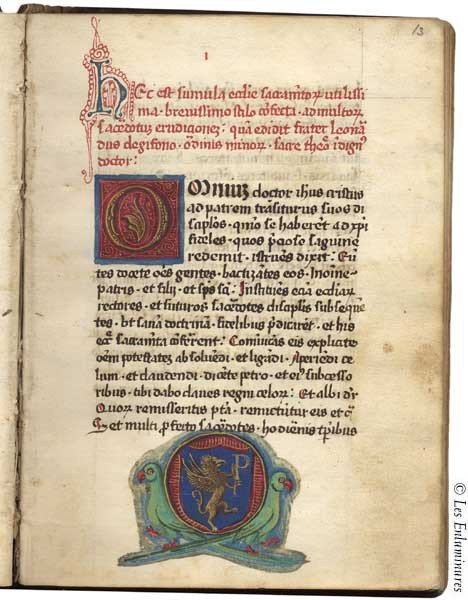 13
I
Hec est sumula ecclie sacramẽtoꝝ utilissi
ma · brevissimo stilo cõfecta · ad multoꝝ
sacẽdotuz erudigonez : quã edidit frater leonar
dus de gifono · ordinis minoꝝ · sacre theo' indign'
doctor :
Omniuz doctor ihus cristus
ad patrem trãsiturus suos di
scip̃los · quõ se haberẽt ad xp̃i
fideles · quos p̃tioso sãguine
redemit · istruẽs dixit : Eũ
tes docete oẽs gentes · bactizãtes eos · In noĩe
patris · et filii · et sp̃s sc̃i : Instituẽs etiã eccliaꝝ
rectores · et futuros sacẽdotes discip̃lis subseque
tes · ut sanã doctrinã · fidelibus p̃dicarẽt · et his
eccl'e sacramẽta cõferrent : Comunicãs eis explicate
oẽm potestatez absoluẽdi · et ligãdi : Aperiẽdi ce
lum · et claudendi · dicẽte petro · et eiꝰ successo
ribus · tibi dabo claues regni celoꝝ : Et alibi dr̃
Quoꝝ remisseritis pc̃ta · remictũtur eis et c̃
Et multi ꝓfecto sacẽdotes · hodiẽnis tp̃ribus
P
© Les Enluminures